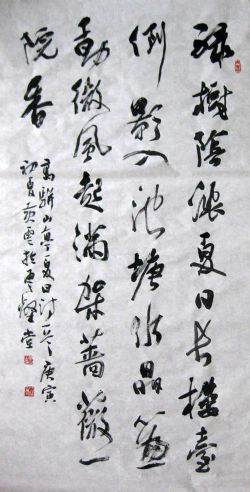 綠樹陰濃夏日長樓臺
倒影入池塘水晶簾
動微風起滿架薔薇一
院香
高駢山亭夏日詩一首庚寅
初夏於堂